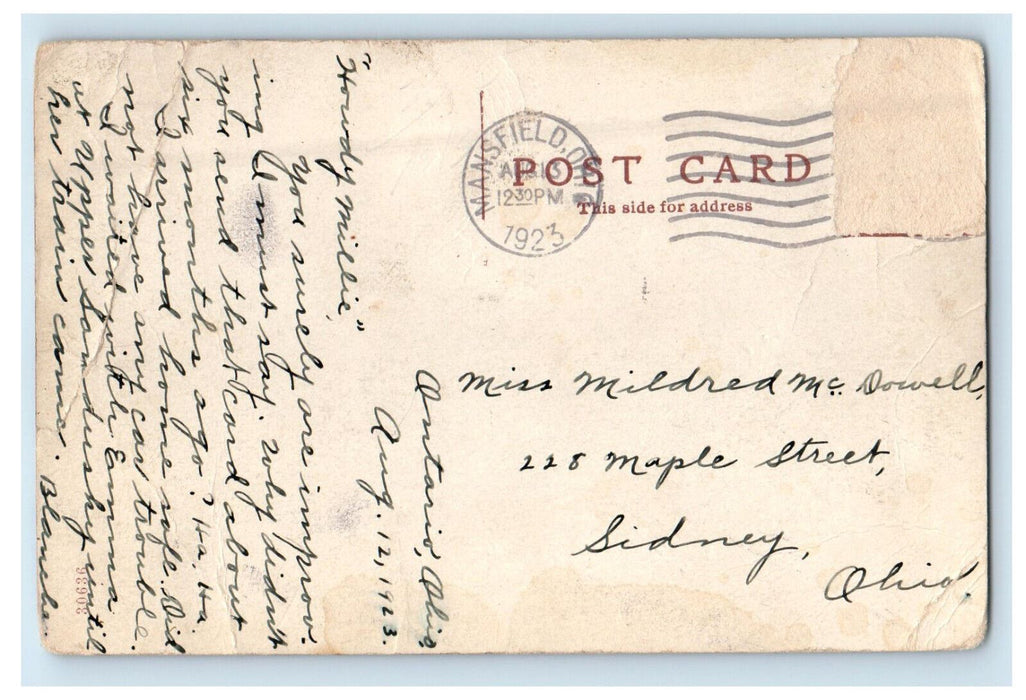 POST CARD
This side for address
MANSFIELD, OHIO
AUG 13
12 30 PM
1923
Miss Mildred Mc Dowell,
228 Maple Street,
Sidney,
Ohio.
Ontario, Ohio
Aug. 12, 1923.
"Howdy Millie,"
You surely are improv-
ing I must say. Why didn't
you send that card about
six months ago? Ha. Ha.
I arrived home safe. Did
not have any car trouble.
I waited with Emma
at Upper Sandusky until
her train came. Blanche.
30636